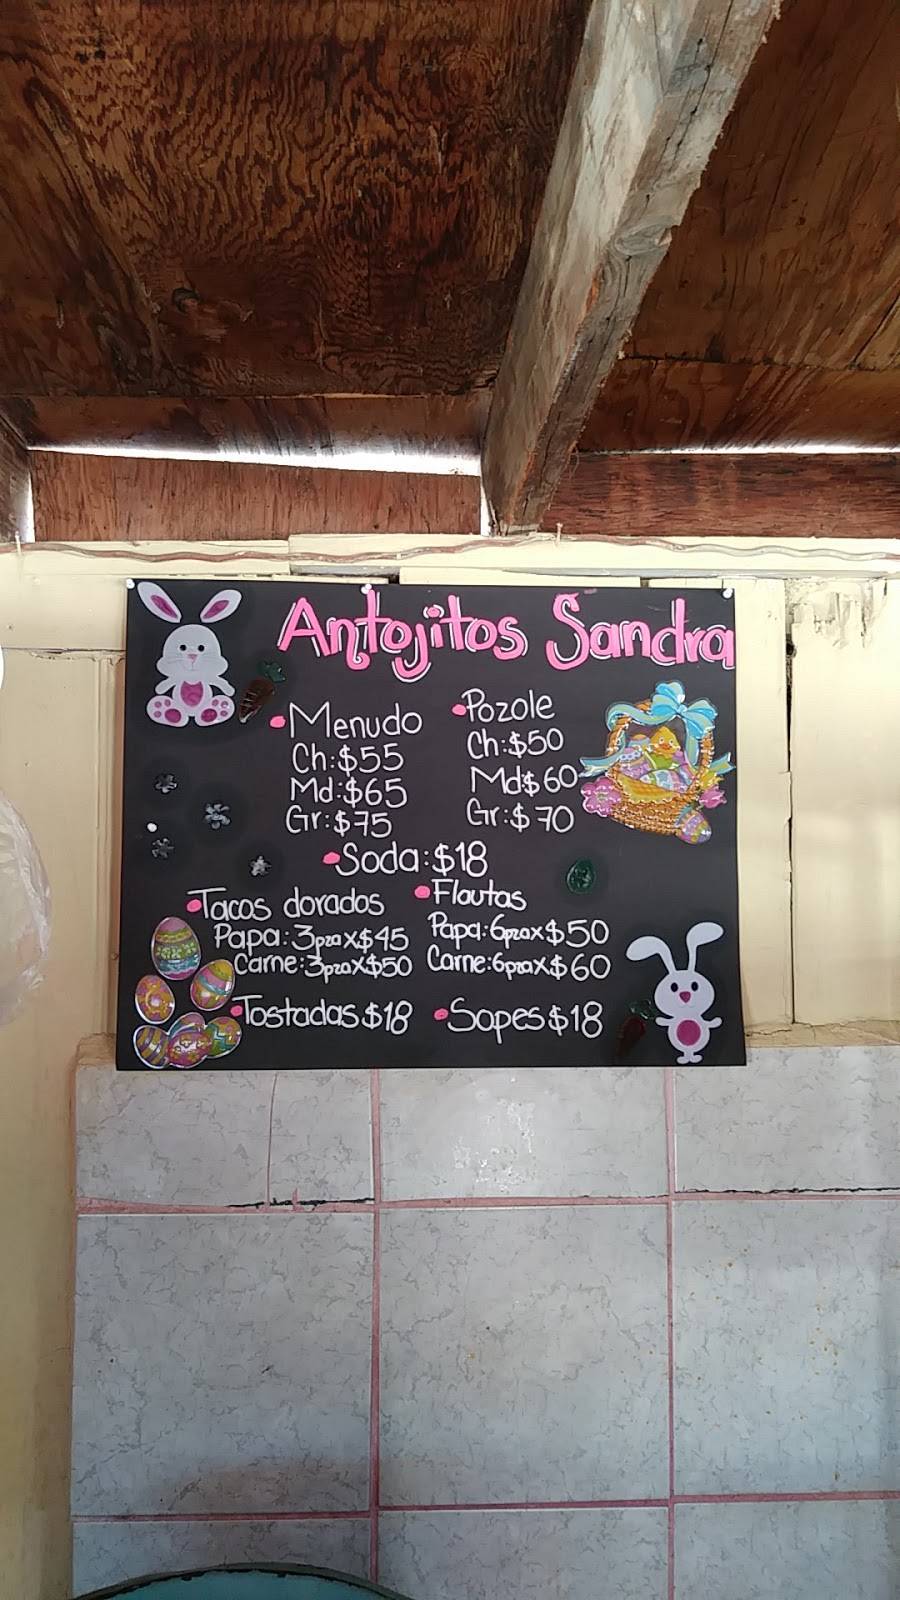 Antojitos Sandra
•Menudo
Ch:$55
Md:$65
Gr:$75
•Pozole
Ch:$50
Md$60
Gr:$70
•Soda:$18
•Tacos dorados
Papa:3pzax$45
Carne:3pzax$50
•Flautas
Papa:6pzax$50
Carne:6pzax$60
•Tostadas$18
•Sopes$18